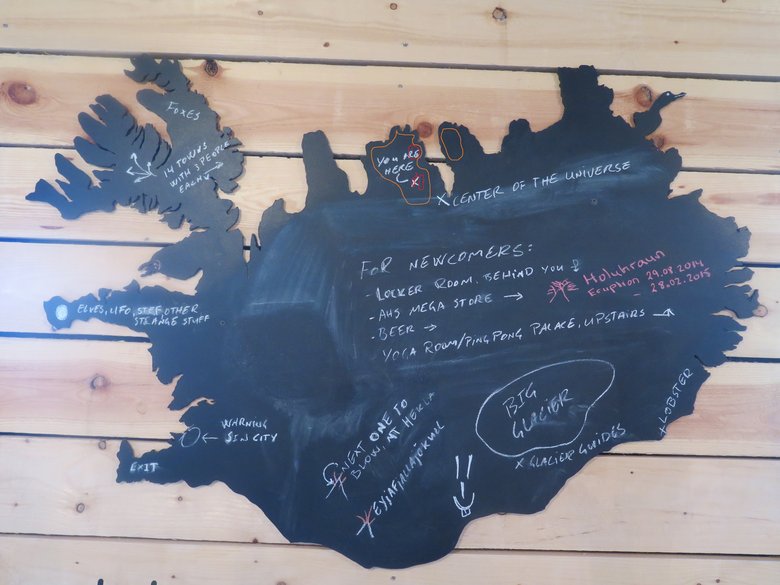 FOXES
14 TOWNS
WITH 3 PEOPLE
EACH
YOU ARE
HERE
X
X CENTER OF THE UNIVERSE
FOR NEWCOMERS:
- LOCKER ROOM, BEHIND YOU
- AHS MEGA STORE →
- BEER →
YOGA ROOM/PING PONG PALACE, UPSTAIRS →
Holuhraun
Eruption 29.08.2014
- 28.02.2015
ELVES, UFO, OTHER
STRANGE STUFF
← WARNING
SIN CITY
EXIT
NEXT ONE TO
BLOW, MT HEKLA
EYJAFJALLAJÖKULL
BIG
GLACIER
X GLACIER GUIDES
X LOBSTER